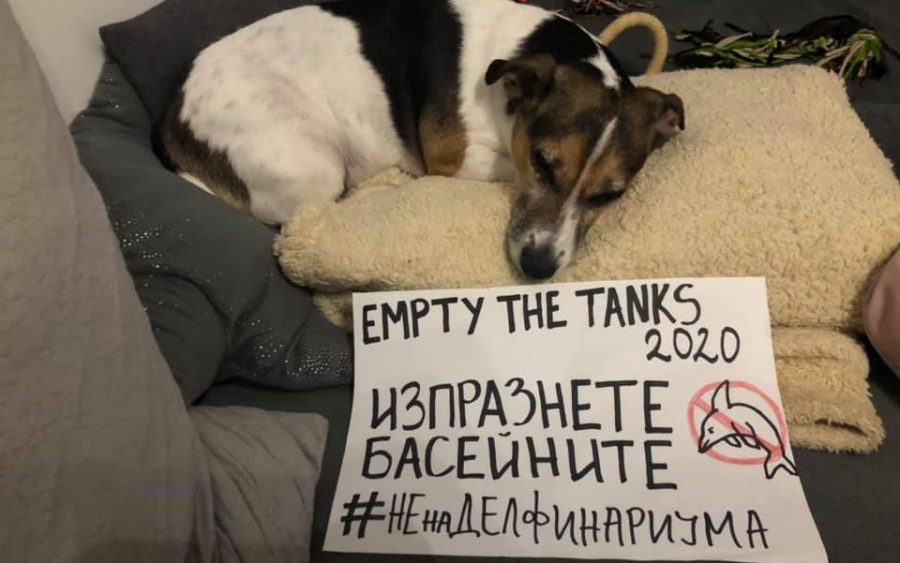 EMPTY THE TANKS
2020
ИЗПРАЗНЕТЕ
БАСЕЙНИТЕ
#НЕнаДЕЛФИНАРИУМА